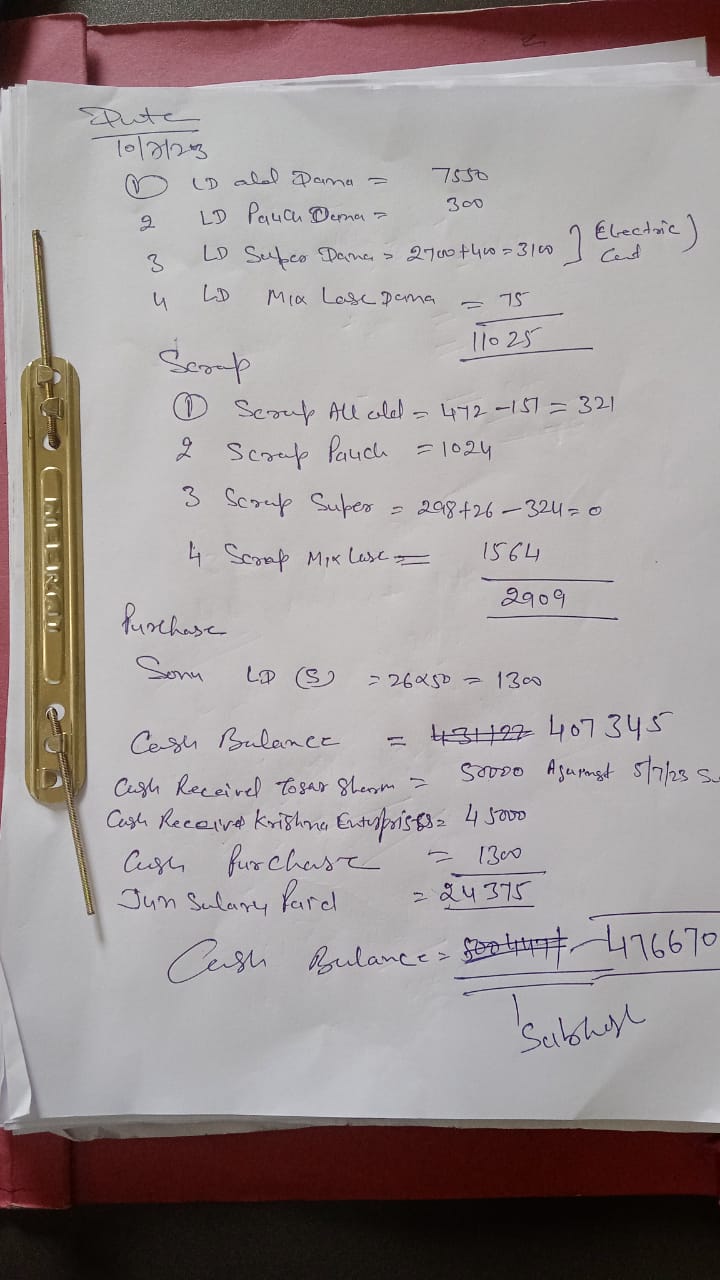 Date
10/7/23
① LD alal Dana = 7550
2 LD Pauch Dana = 300
3 LD Super Dana = 2700+400=3100 ] Electric )
4 LD Mix Lase Dana = 75
11025
Scrap
① Scrap All alal = 472-151=321
2 Scrap Pauch = 1024
3 Scrap Super = 298+26-324=0
4 Scrap Mix Lase = 1564
2909
Purchase
Sonu LD (S) = 26x50 = 1300
Cash Balance = 431122 407345
Cash Received Tosar Sharm = 50000 Aganst 5/7/23
Cash Received Krishna Entusprises = 45000
Cash Purchase = 1300
Jun Salary Paid = 24375
Cash Balance = 476670